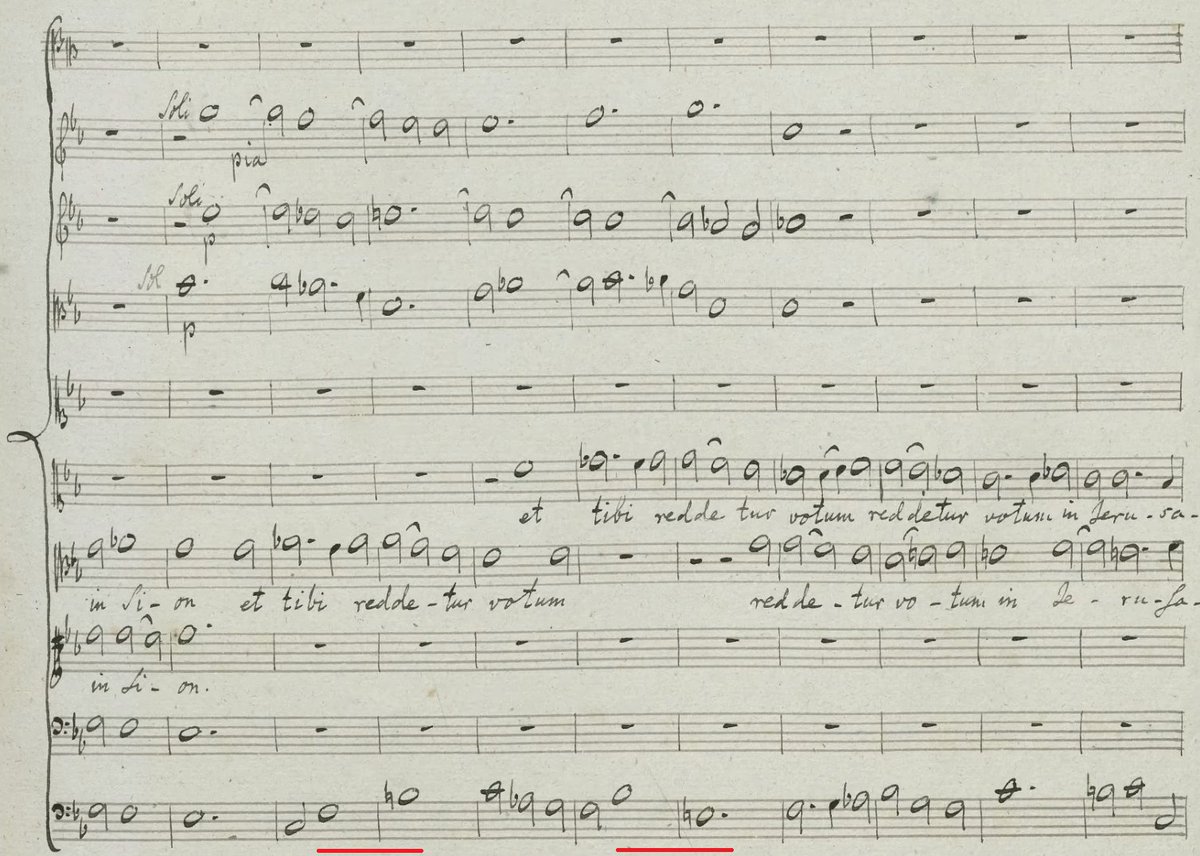 Soli
pia
Soli
p
Sol
p
et tibi redde tur votum reddetur votum in Jeru - sa -
in Si - on et tibi redde - tur votum redde - tur vo - tum in Je - ru - sa -
in Si - on.